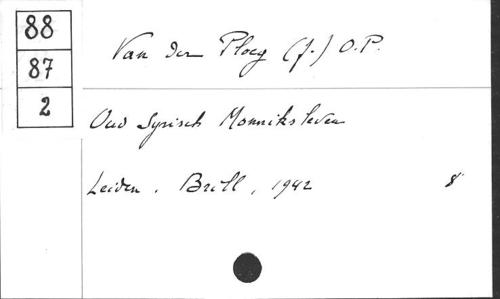 88
87
2
Van der Ploeg (J.) O.P.
Oud Syrisch Monniksleven
Leiden. Brill, 1942 8°